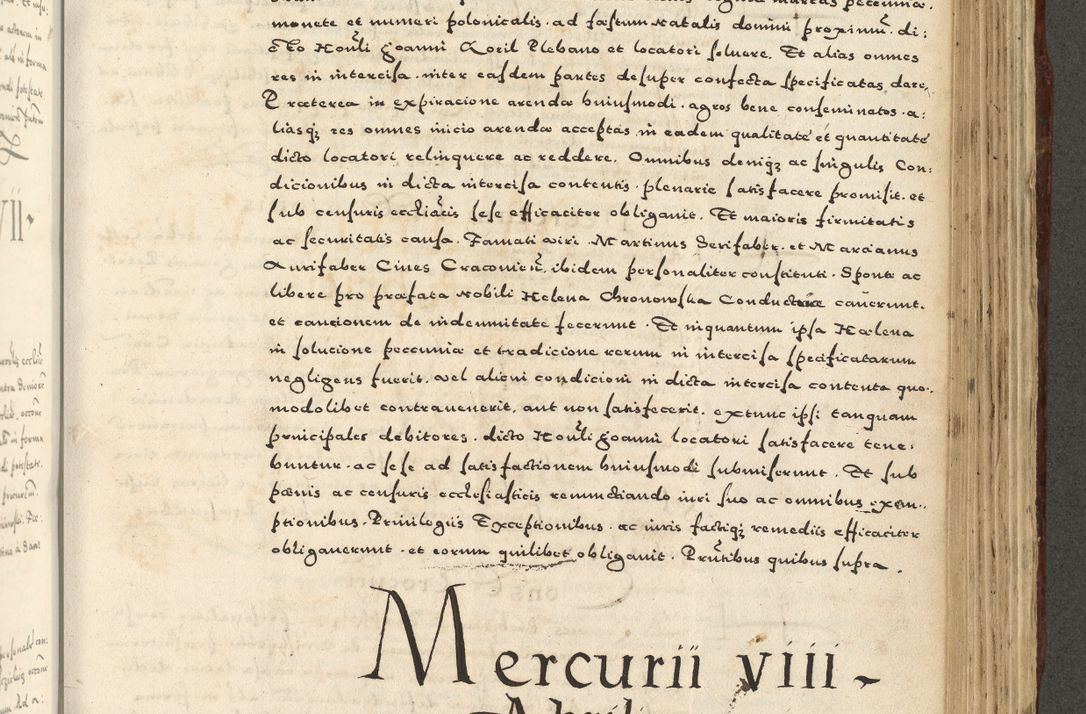 monete et numeri polonicalis. ad fastum Natalis domini proximũ. di:
cto Honli Joanni Koril Plebano et locatori soluere. Et alias omnes
res in intercisa. inter easdem partes desuper confecta specificatas dare,
Præterea in expiracione arendæ huiusmodi. agros bene conseminatos. a:
liasq; res omnes inicio arendæ acceptas in eadem qualitate et quantitate
dicto locatori relinquere ac reddere. Omnibus deniq; ac singulis Con:
dicionibus in dicta intercisa contentis. plenarie satisfacere promisit. et
sub censuris eccliacis sese efficaciter obligauit. Et maioris firmitatis
ac securitatis causa. Famati viri. Martinus Serifaber. et Marcianus
Aurifaber Ciues Cracouieñ. ibidem personaliter constituti. Sponte ac
libere pro præfata Nobili Helena Chronowska Conductrice cauerunt.
et caucionem de indemnitate fecerunt. Et inquantum ipsa Hælena
in solucione peccuniæ et tradicione rerum in intercisa specificatarum
negligens fuerit. vel alicui condicioni in dicta intercisa contenta quo.
modolibet contrauenerit. aut non satisfecerit. extunc ipsi tanquam
principales debitores. dicto Honli Joanni locatori satisfacere tene:
buntur. ac sese ad satisfactionem huiusmodi submiserunt. Et sub
pœnis ac censuris ecclesiasticis renunctiando iuri suo ac omnibus exem.
ptionibus. Priuilegiis Exceptionibus. ac iuris factiq; remediis efficaciter
obligauerunt. et eorum quilibet obligauit. Pñtibus quibus supra.
Mercurii viii
Aprilis